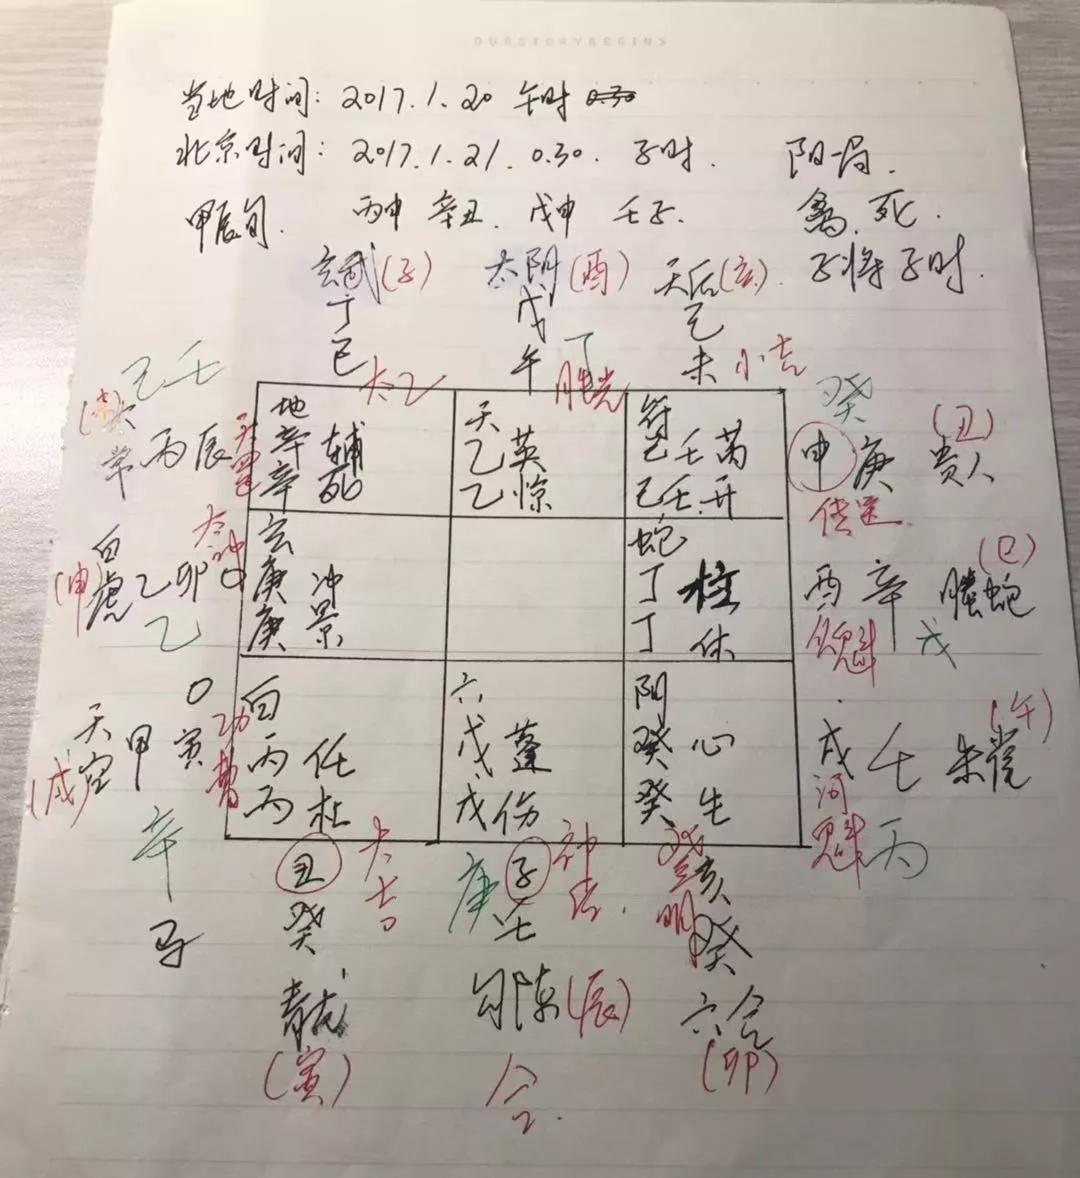 OURSTORYBEGINS
当地时间: 2017.1.20 午时 0.30
北京时间: 2017.1.21. 0.30. 子时. 阳一局.
甲辰旬. 丙申 辛丑. 戊申 壬子. 禽. 死.
子将子时.
玄武(子) 太阴(酉) 天后(亥).
丁 戊 己
巳 太乙 午 丁 胜光 未 小吉
己壬 癸
常 丙辰 天罡 申 庚 贵人 (丑)
传送
地 天 符
辛 辅 乙 英 己 壬 芮
辛 死 乙 惊 己 壬 开
(申) 白虎 乙 卯 太冲 酉 辛 螣蛇 (巳)
乙 魁 戊
玄 蛇
庚 冲 丁 柱
庚 景 丁 休
(戌) 天空 甲 寅 功曹 戌 壬 朱雀 (午)
辛 河魁 丙
白 六 阴
丙 任 戊 蓬 癸 心
丙 杜 戊 伤 癸 生
丑 大吉 庚 子 神后. 亥
癸 壬 明 癸
青龙 勾陈(辰) 六合
(寅) 合. (卯)